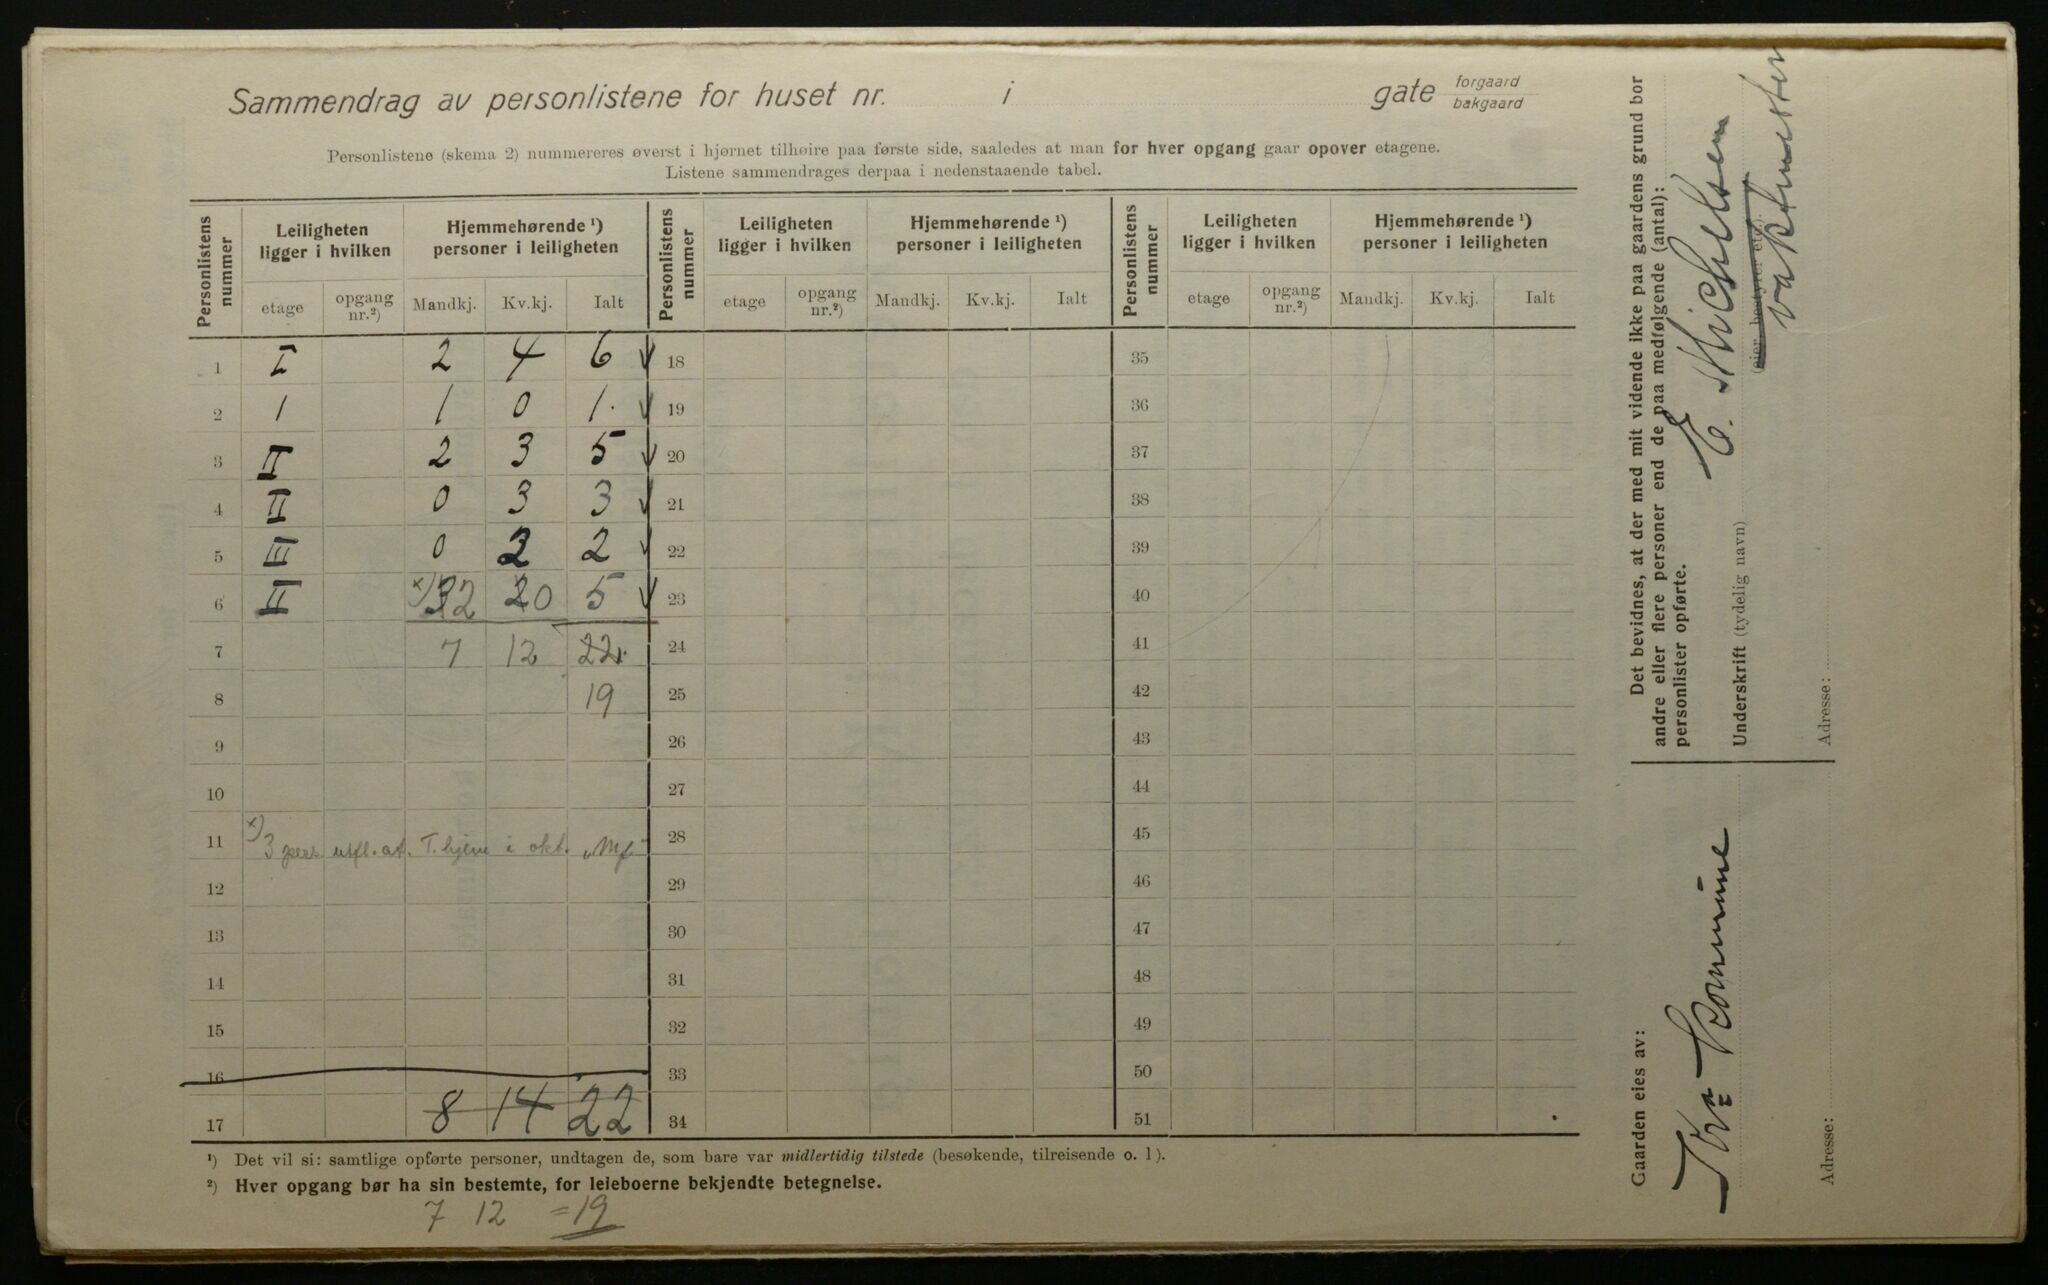 Sammendrag av personlistene for huset nr. i gate forgaard
bakgaard
Personlistene (skema 2) nummereres øverst i hjørnet tilhøire paa første side, saaledes at man for hver opgang gaar opover etagene.
Listene sammendrages derpaa i nedenstaaende tabel.
Personlistens nummer Leiligheten ligger i hvilken Hjemmehørende ¹) personer i leiligheten Personlistens nummer Leiligheten ligger i hvilken Hjemmehørende ¹) personer i leiligheten Personlistens nummer Leiligheten ligger i hvilken Hjemmehørende ¹) personer i leiligheten
etage opgang nr.²) Mandkj. Kv.kj. Ialt etage opgang nr.²) Mandkj. Kv.kj. Ialt etage opgang nr.²) Mandkj. Kv.kj. Ialt
1 I 2 4 6 18 35
2 1 1 0 1. 19 36
3 II 2 3 5 20 37
4 II 0 3 3 21 38
5 III 0 2 2 22 39
6 II x) 2 0 5 23 40
7 7 12 22. 24 41
8 19 25 42
9 26 43
10 27 44
11 x) 3 pers. utfl. at. T. hjem i okt. 28 45
12 29 46
13 30 47
14 31 48
15 32 49
16 33 50
17 8 14 22 34 51
¹) Det vil si: samtlige opførte personer, undtagen de, som bare var midlertidig tilstede (besøkende, tilreisende o. l).
²) Hver opgang bør ha sin bestemte, for leieboerne bekjendte betegnelse.
7 12 = 19
Det bevidnes, at der med mit vidende ikke paa gaardens grund bor
andre eller flere personer end de paa medfølgende (antal):
personlister opførte.
E. Michelsen
Underskrift (tydelig navn)
(eier, bestyrer etc.)
vaktmester
Adresse:
Gaarden eies av:
Kra Kommune
Adresse: